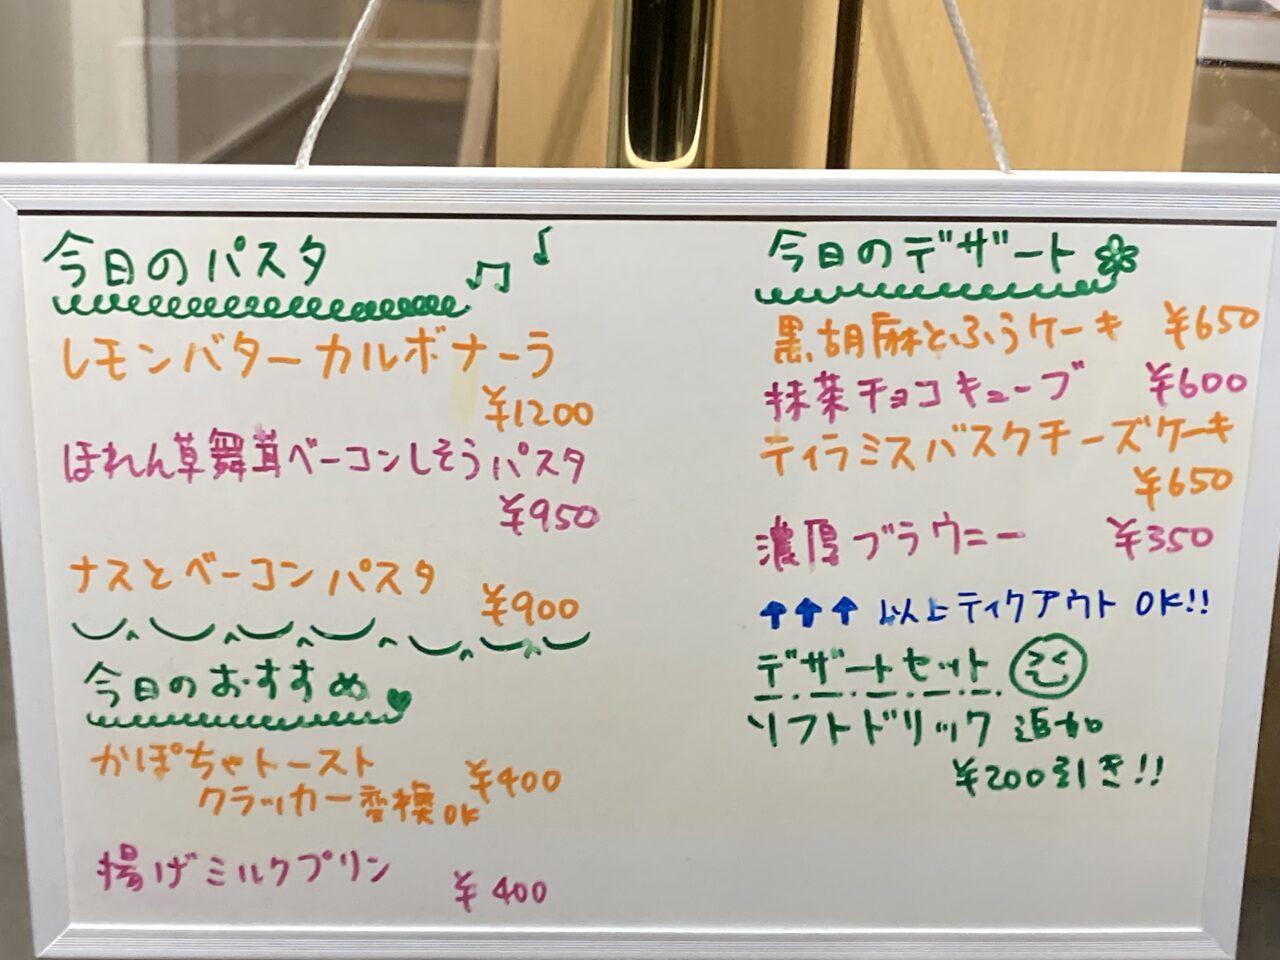 今日のパスタ
レモンバターカルボナーラ
¥1200
ほれん草舞茸ベーコンしそうパスタ
¥950
ナスとベーコンパスタ
¥900
今日のおすすめ
かぼちゃトースト
¥400
クラッカー変換OK
揚げミルクプリン
¥400
今日のデザート
黒胡麻とふうケーキ ¥650
抹茶チョコキューブ ¥600
ティラミスバスクチーズケーキ
¥650
濃厚ブラウニー ¥350
↑↑↑ 以上ティクアウトOK!!
デザートセット
ソフトドリック追加
¥200引き!!